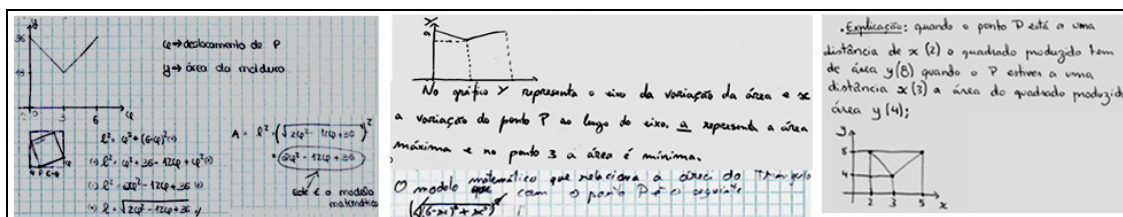 y
36
18
0
3
6
φ
φ → deslocamento de P
y → área da moldura
φ P 6-φ
l² = φ² + (6-φ)² (=)
(=) l² = φ² + 36 - 12φ + φ² (=)
(=) l² = 2φ² - 12φ + 36 (=)
(=) l = √2φ² - 12φ + 36
A = l² = (√2φ² - 12φ + 36)²
= 2φ² - 12φ + 36
Este é o modelo
matemático
Y
a
No gráfico Y representa o eixo da variação da área e x
a variação do ponto P ao longo do eixo. a representa a área
máxima e no ponto 3 a área é mínima.
O modelo matemático que relaciona a área do triângulo
com o ponto P é o seguinte
(√(6-x)² + x²)²
. Explicação: quando o ponto P está a uma
distância de x (2) o quadrado produzido tem
de área y (8) quando o P estiver a uma
distância x (3) a área do quadrado produzid
área y (4);
y
8
4
2 3 5 x